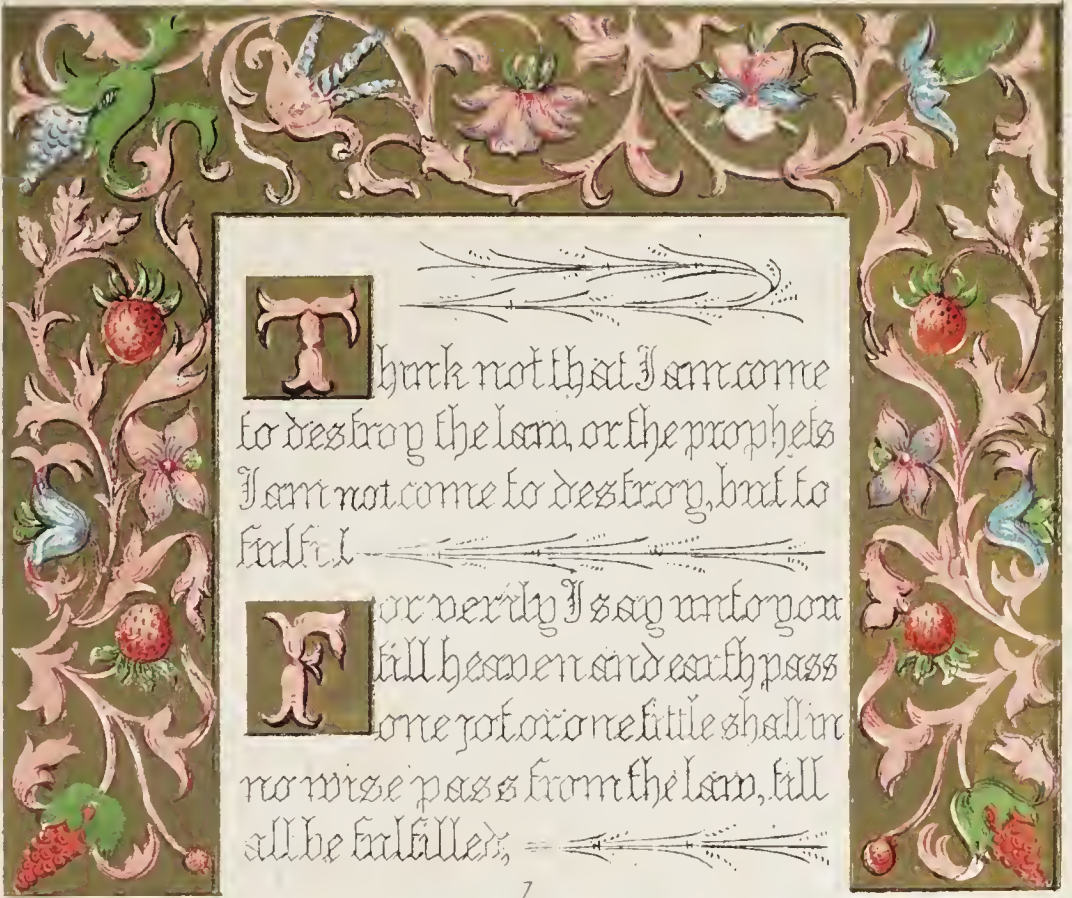 Think not that I am come
to destroy the law, or the prophets
I am not come to destroy, but to
fulfil
For verily I say unto you
till heaven and earth pass
one jot or one tittle shall in
no wise pass from the law, till
all be fulfilled,
7